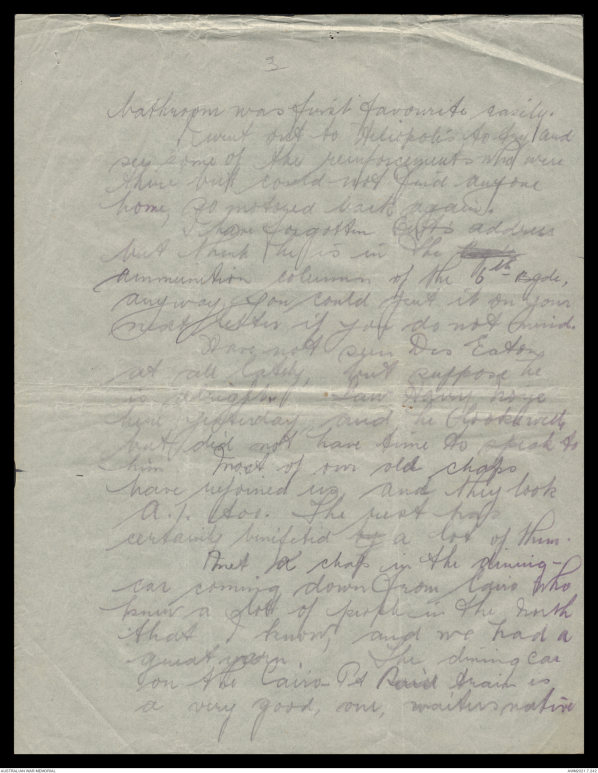 3
bathroom was first favourite easily.
I went out to Heliopolis to try and
see some of the reinforcements who were
there but could not find anyone
home, so motored back again.
I have forgotten address
but think he is in the
ammunition column of the 6th Bgde,
anyway you could put it on your
next letter if you do not mind.
Have not seen Des Eaton
at all lately, but suppose he
is alright. Saw Harry
here yesterday and he looks well
but did not have time to speak to
him Most of our old chaps
have rejoined us and they look
A.1. too. The rest has
certainly benifited by a lot of them.
Met a chap in the dining-
car coming down from Cairo who
knew a lot of people in the North
that I know, and we had a
great yarn. The dining car
on the Cairo-Pt Said train is
a very good, one, waiters native
AUSTRALIAN WAR MEMORIAL
AWM2021.7.242